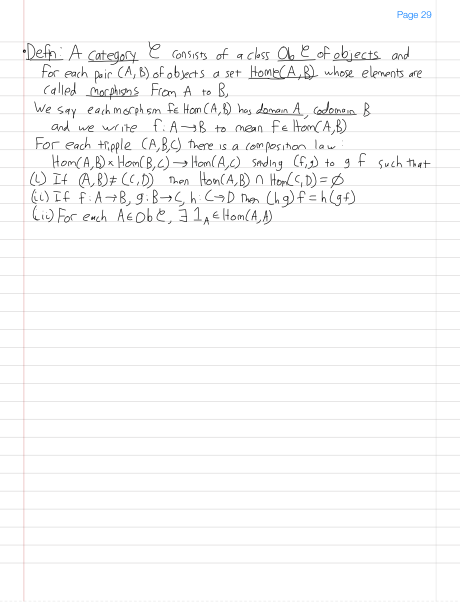 Page 29
• Defn: A category 𝒞 consists of a class Ob 𝒞 of objects and
for each pair (A, B) of objects a set Home(A,B) whose elements are
called morphisms From A to B,
We say each morphism f∈ Hom(A,B) has domain A, codomain B
and we write f: A→B to mean f∈Hom(A,B)
For each tripple (A,B,C) there is a composition law:
Hom(A,B)×Hom(B,C)→Hom(A,C) sending (f,g) to g f such that
(i) If (A,B)≠(C,D) then Hom(A,B) ∩ Hom(C,D)=∅
(ii) If f:A→B, g:B→C, h:C→D then (hg)f = h(gf)
(iii) For each A∈Ob 𝒞, ∃ 1_A ∈ Hom(A,A)